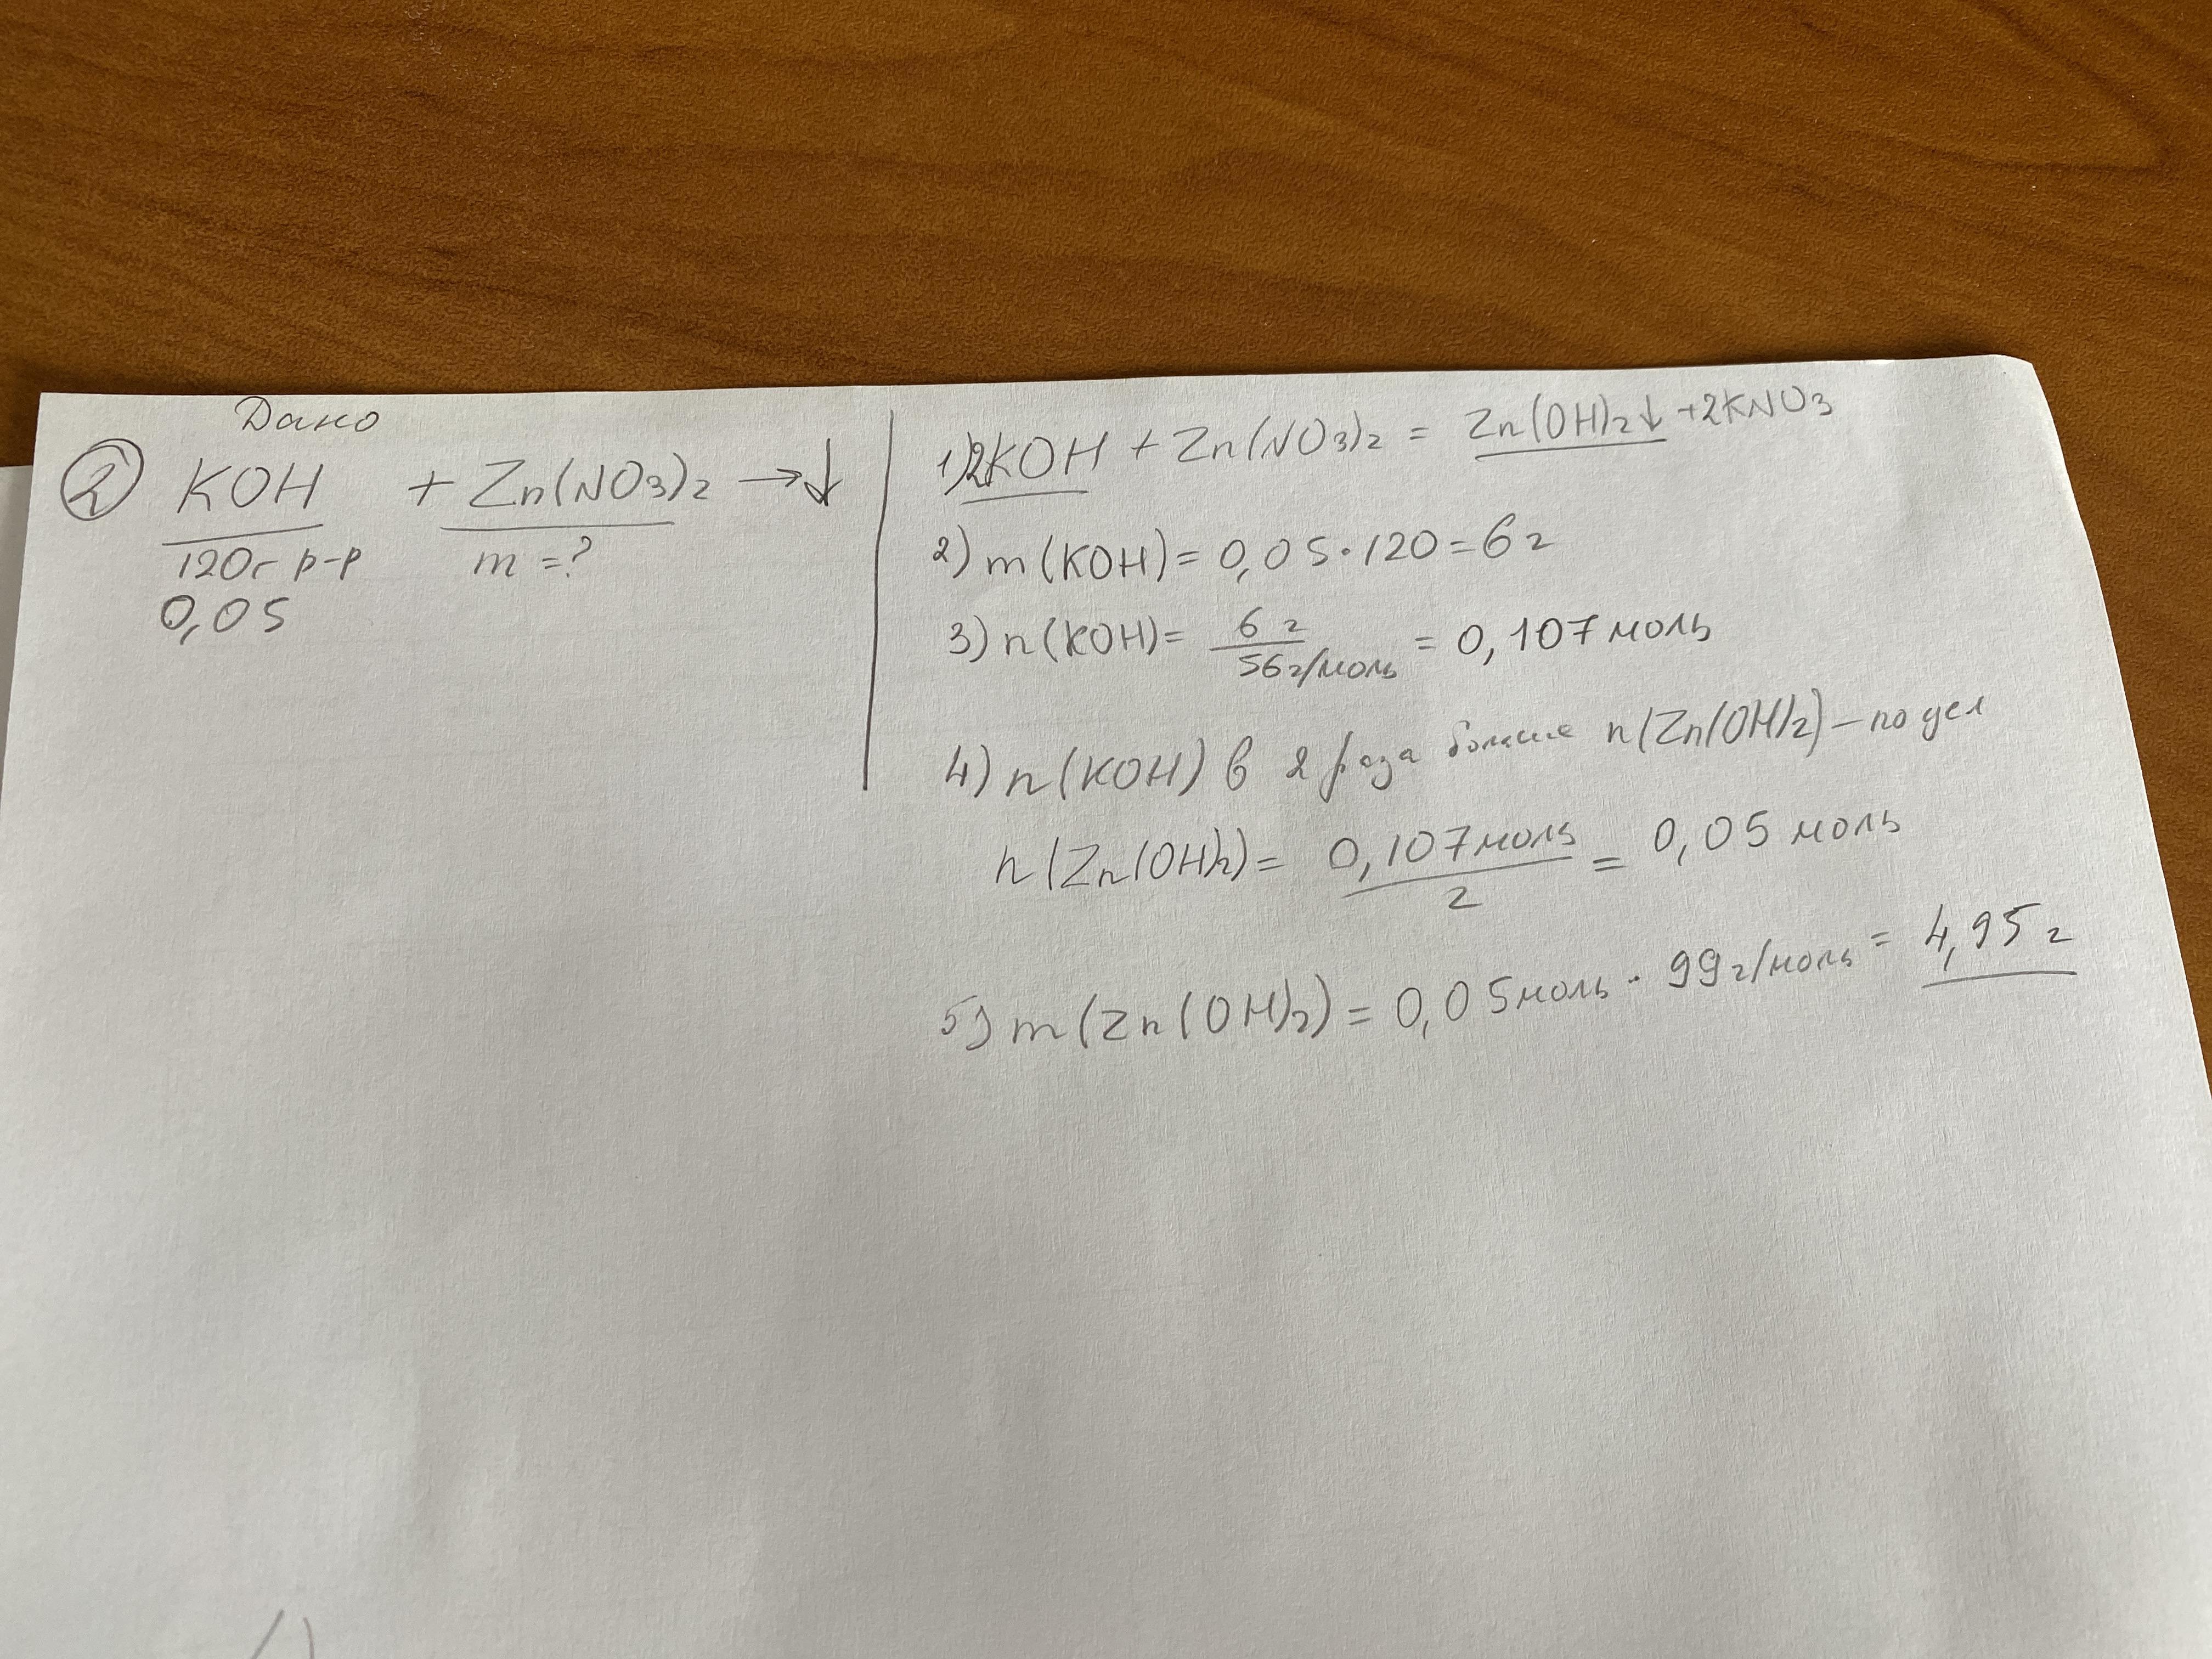 Дано
② KOH + Zn(NO3)2 → ↓
120г р-р m = ?
0,05
1) 2KOH + Zn(NO3)2 = Zn(OH)2↓ + 2KNO3
2) m(KOH) = 0,05 · 120 = 6 г
3) n(KOH) = 6 г / 56 г/моль = 0,107 моль
4) n(KOH) в 2 раза больше n(Zn(OH)2) – по усл
n(Zn(OH)2) = 0,107 моль / 2 = 0,05 моль
5) m(Zn(OH)2) = 0,05 моль · 99 г/моль = 4,95 г